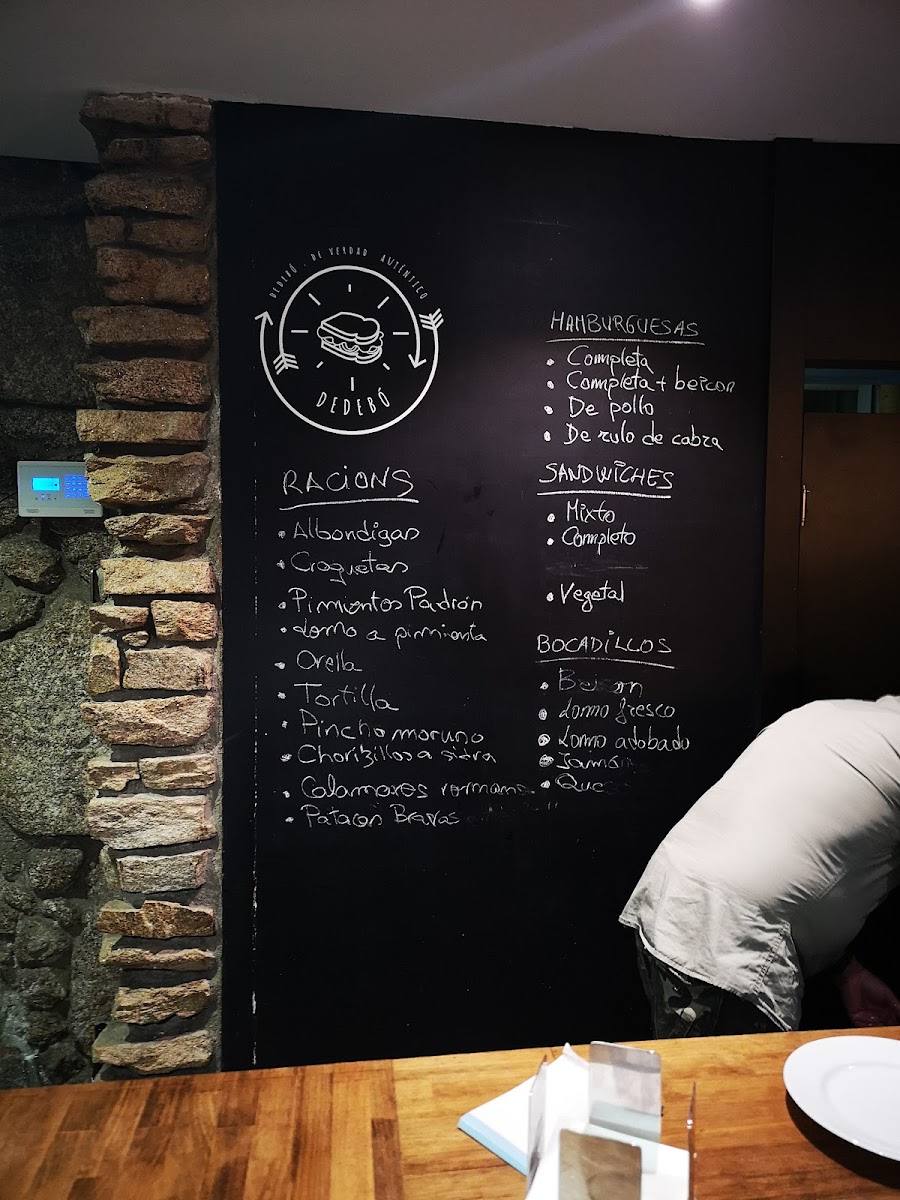 DEDEBÓ . DE VERDAD AUTÉNTICO
DEDEBÓ
RACIONS
Albondigas
Croquetas
Pimientos Padrón
Lomo a pimienta
Orella
Tortilla
Pincho moruno
Chorizillos a sidra
Calamares romana
Patacas Bravas
HAMBURGUESAS
Completa
Completa + beicon
De pollo
De rulo de cabra
SANDWICHES
Mixto
Completo
Vegetal
BOCADILLOS
Lomo fresco
Lomo adobado
Jamón